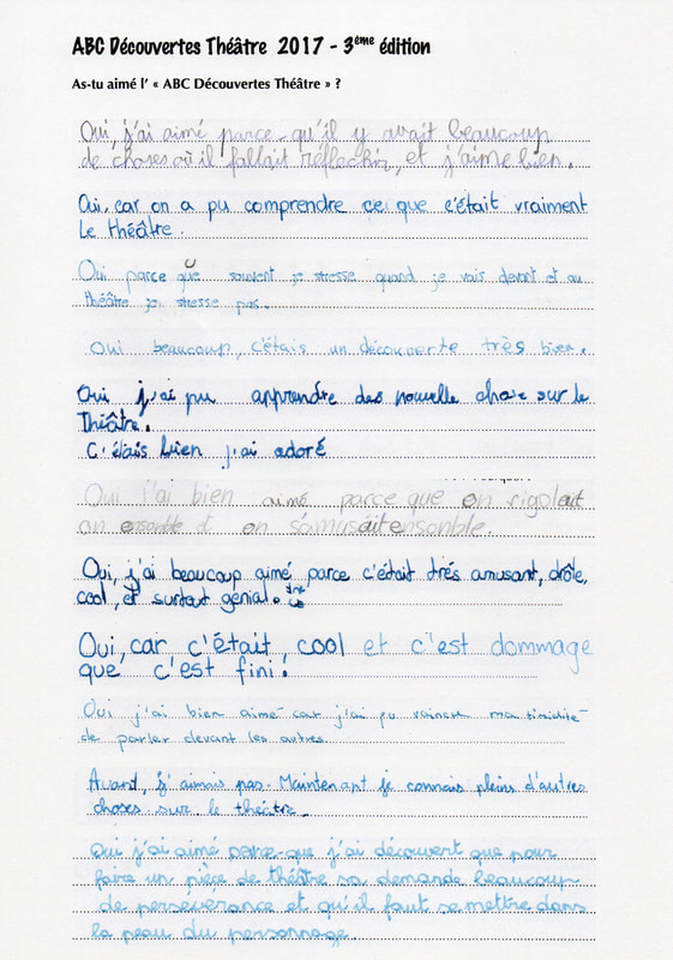 ABC Découvertes Théâtre 2017 - 3ème édition
As-tu aimé l' « ABC Découvertes Théâtre » ?
Oui, j'ai aimé parce-qu'il y avait beaucoup
de choses où il fallait réfléchir, et j'aime bien.
Oui, car on a pu comprendre ce que c'était vraiment
le théâtre.
Oui parce que souvent je stresse quand je vais devant et au
théâtre je stresse pas.
Oui beaucoup, c'étais un découverte très bien.
Oui j'ai pu apprendre des nouvelle chose sur le
Théâtre.
C'étais bien j'ai adoré
Oui j'ai bien aimé parce que on rigolait
on ensemble et on s'amusait ensemble.
Oui, j'ai beaucoup aimé parce c'était trés amusant, drôle,
cool, et surtout génial.
Oui, car c'était, cool et c'est dommage
que c'est fini!
Oui j'ai bien aimé car j'ai pu vaincre ma timidité
de parler devant les autres.
Avant, j'aimais pas. Maintenant je connais pleins d'autres
choses sur le théâtre.
Oui j'ai aimé parce-que j'ai découvert que pour
faire un pièce de théâtre sa demande beaucoup
de persévérance et qu'il faut se mettre dans
la peau du personnage.